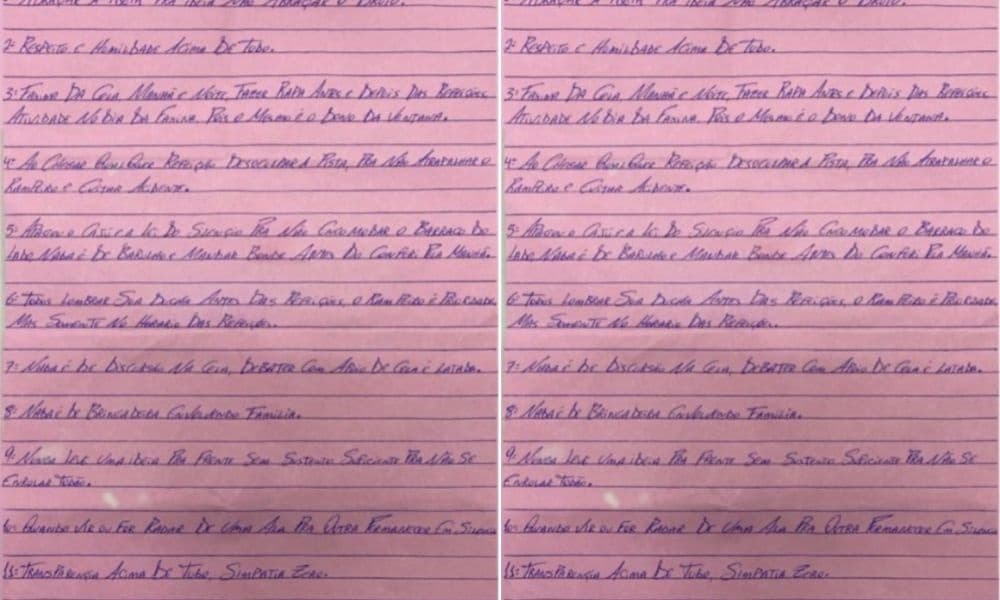 2ª Respeito e Humildade Acima De Tudo.
3ª Faxina Da Cela, Manhã e Noite, Fazer Rapa Antes e Depois Das Refeições
Atividade No Dia Da Faxina, Pois o Mesmo é o Dono Da Ventana.
4ª Ao Chegar Qualquer Refeição Desocupar A Pista, Pra Não Atrapalhar o
Rampeiro e Evitar Acidente.
5ª Apagou o é a Lei Do Silencio Pra Não Encomodar o Barraco Do
Lado Nada é De Barulho e Mandar Bonde Antes Do Confere Pela Manhã.
6ª Todos Lembrar Sua Ducha Antes Das Refeições, o Rampeiro é Prioridade
Mas Somente No Horario Das Refeições.
7ª Nada é De Discursão Na Cela, Debater Com Apoio De é Latada.
8ª Nada é De Brincadeira Envolvendo Familia.
9ª Nunca Leve Uma Ideia Pra Frente Sem Sustento Suficiente Pra Não Se
Enrolar Todão.
10ª Quando Vir ou For Radar De Uma Ala Pra Outra Permanecer Em Silencio
11ª Transparençia Acima De Tudo, Simpatia Zero.
2ª Respeito e Humildade Acima De Tudo.
3ª Faxina Da Cela, Manhã e Noite, Fazer Rapa Antes e Depois Das Refeições
Atividade No Dia Da Faxina, Pois o Mesmo é o Dono Da Ventana.
4ª Ao Chegar Qualquer Refeição Desocupar A Pista, Pra Não Atrapalhar o
Rampeiro e Evitar Acidente.
5ª Apagou o é a Lei Do Silencio Pra Não Encomodar o Barraco Do
Lado Nada é De Barulho e Mandar Bonde Antes Do Confere Pela Manhã.
6ª Todos Lembrar Sua Ducha Antes Das Refeições, o Rampeiro é Prioridade
Mas Somente No Horario Das Refeições.
7ª Nada é De Discursão Na Cela, Debater Com Apoio De é Latada.
8ª Nada é De Brincadeira Envolvendo Familia.
9ª Nunca Leve Uma Ideia Pra Frente Sem Sustento Suficiente Pra Não Se
Enrolar Todão.
10ª Quando Vir ou For Radar De Uma Ala Pra Outra Permanecer Em Silencio
11ª Transparençia Acima De Tudo, Simpatia Zero.